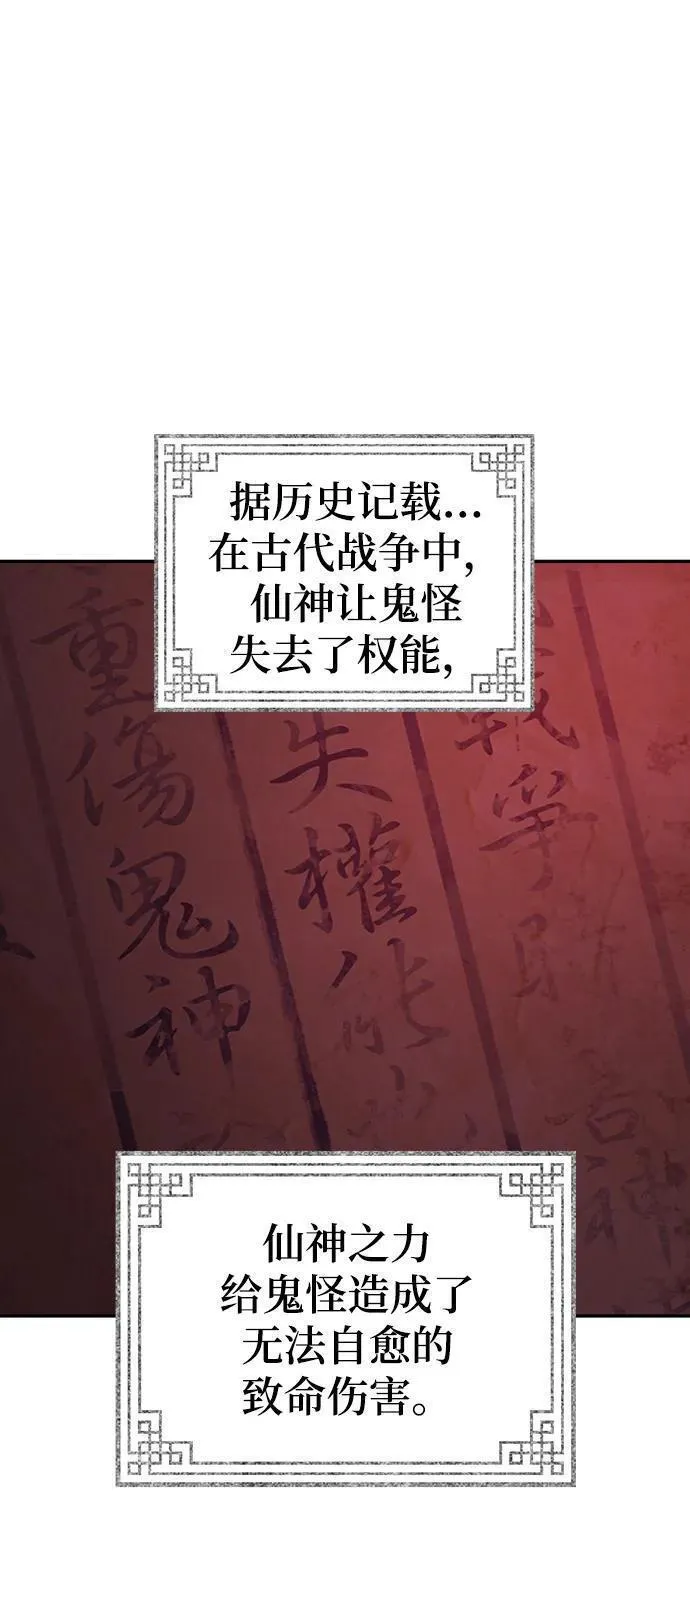 据历史记载...
在古代战争中,
仙神让鬼怪
失去了权能,
戰爭時
失權能
重傷鬼神
言神
仙神之力
给鬼怪造成了
无法自愈的
致命伤害。